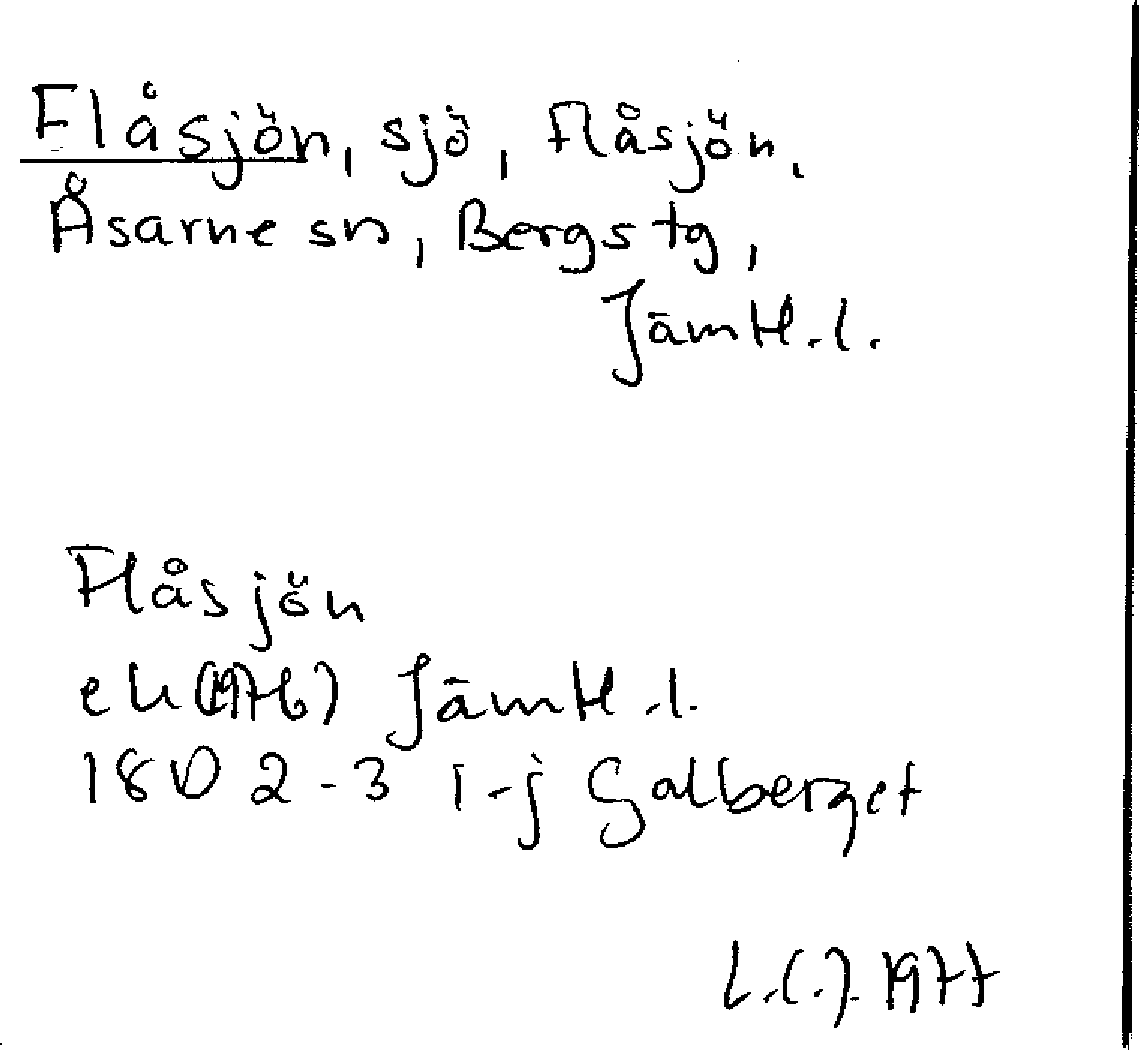 Flåsjön, sjö, Flåsjön,
Åsarne sn, Bergs tg,
Jämtl.l.
Flåsjön
ek (1976) Jämtl.l.
18D 2-3 i-j Galberget
L.C.J. 1977